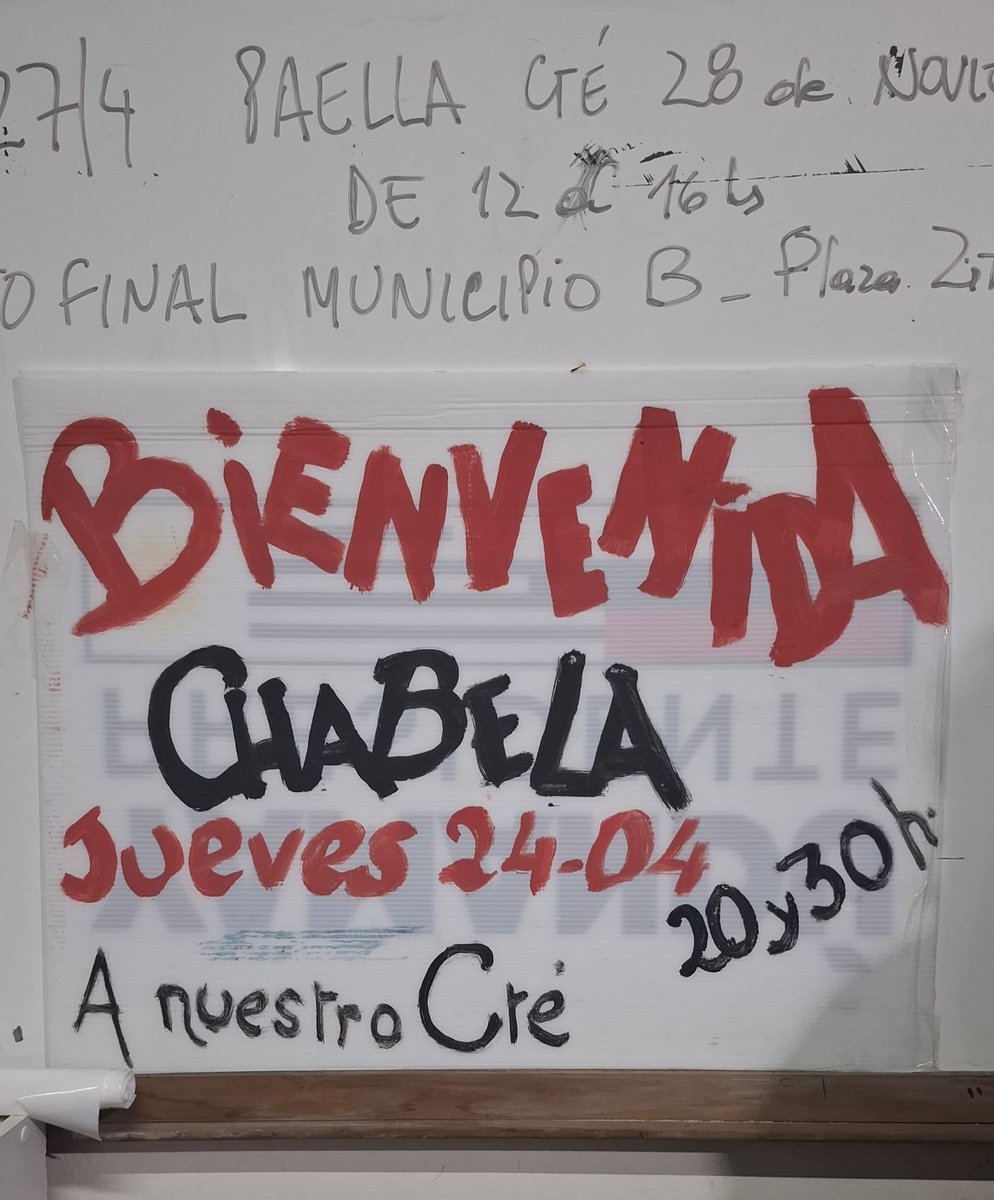 27/4 PAELLA CTÉ 28 de
DE 12 a 16 hs
FINAL MUNICIPIO B - Plaza
BIENVENIDA
CHABELA
Jueves 24-04
20 y 30 h.
A nuestro Cté